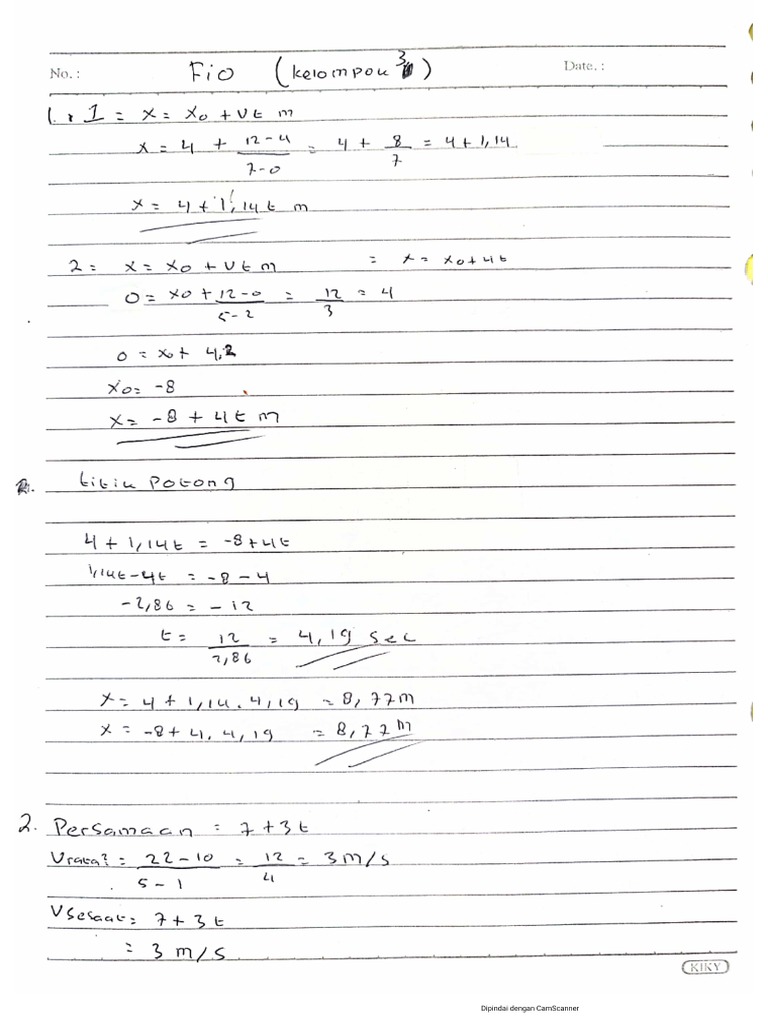 No. :
Fio (kelompok 3)
Date. :
1. 1 = x = x0 + vt m
x = 4 + 12-4 / 7-0 = 4 + 8/7 = 4 + 1,14
x = 4 + 1,14t m
2 = x = x0 + vt m = x = x0 + 4t
0 = x0 + 12-0 / 5-2 = 12/3 = 4
0 = x0 + 4,2
x0 = -8
x = -8 + 4t m
titik potong
4 + 1,14t = -8+4t
1,14t-4t = -8-4
-2,86 = -12
t = 12/2,86 = 4,19 sec
x = 4 + 1,14 . 4,19 = 8,77m
x = -8 + 4 . 4,19 = 8,77m
2. Persamaan = 7+3t
Vrata? = 22-10 / 5-1 = 12/4 = 3 m/s
Vsesaat = 7+3t
= 3 m/s
KIKY
Dipindai dengan CamScanner